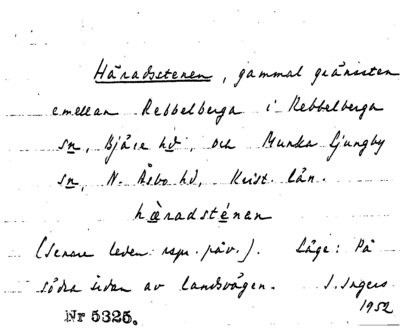 Häradsstenen, gammal gränssten
emellan Rebbelberga i Rebbelberga
sn, Bjäre hd, och Munka Ljungby
sn, N. Åsbo hd, Krist. län.
hàradsténen
(Senare leden uspr. päv.). Läge: På
södra sidan av landsvägen. I. Ingers
1952
Nr 5325.